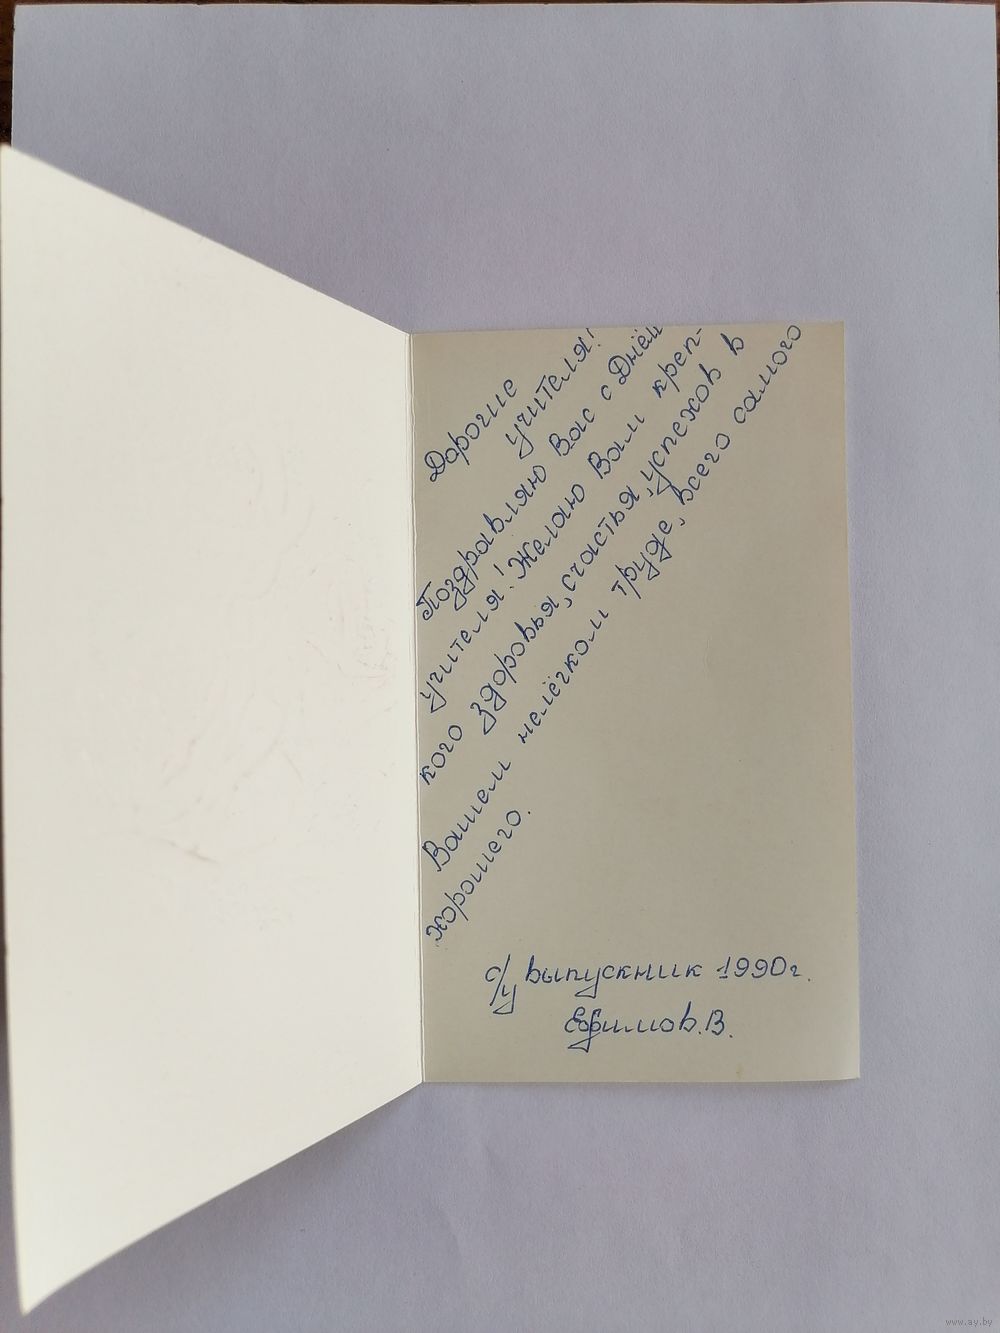 Дорогие
учителя!
Поздравляю Вас с Днём
учителя! Желаю Вам креп-
кого здоровья, счастья, успехов в
Вашем нелёгком труде, всего самого
хорошего.
с/у выпускник 1990г.
Ефимов.В.
www.ay.by